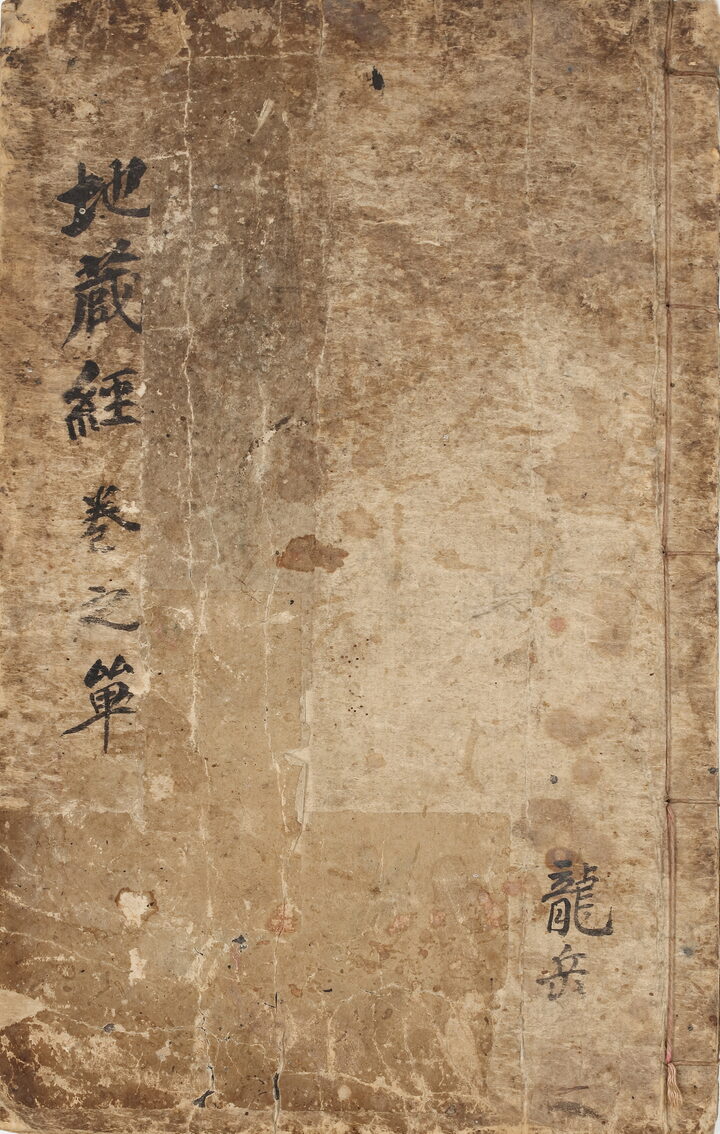 地藏經 卷之單
龍岳